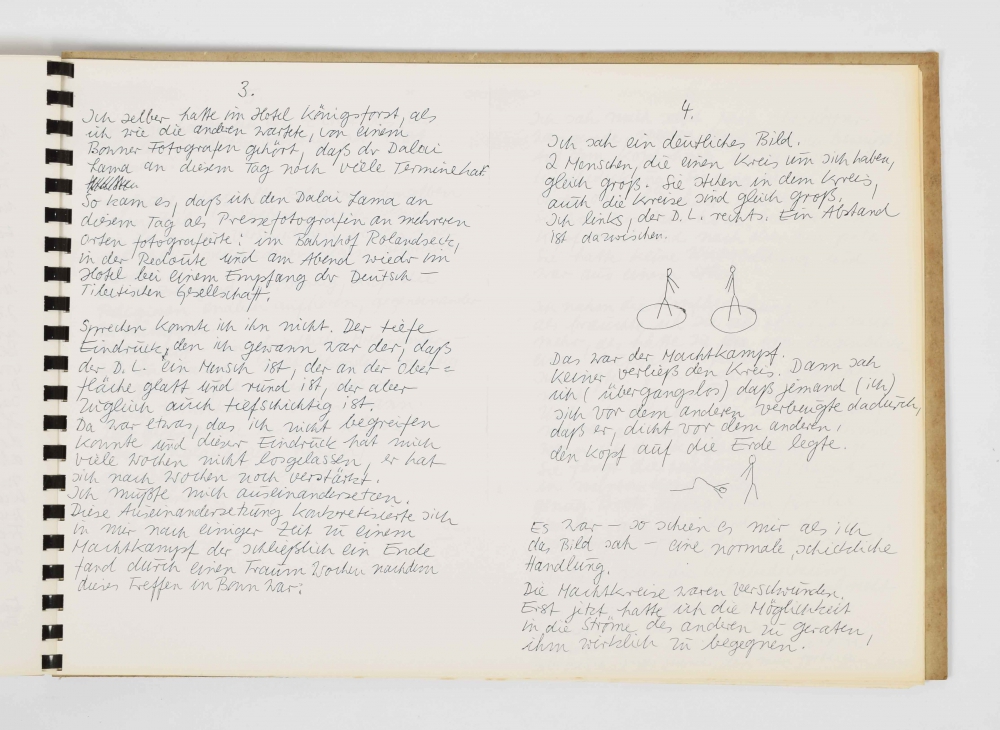 3.
Ich selber hatte im Hotel Königsforst, als
ich wie die anderen wartete, von einem
Bonner Fotografen gehört, daß dr Dalai
Lama an diesem Tag noch viele Termine hat.
So kam es, daß ich den Dalai Lama an
diesem Tag als Pressefotografin an mehreren
Orten fotografierte: im Bahnhof Rolandseck,
in der Redoute und am Abend wieder im
Hotel bei einem Empfang der Deutsch –
Tibetischen Gesellschaft.
Sprechen konnte ich ihn nicht. Der tiefe
Eindruck, den ich gewann war der, daß
der D.L. ein Mensch ist, der an der Ober =
fläche glatt und rund ist, der aber
zugleich auch tiefschichtig ist.
Da war etwas, das ich nicht begreifen
konnte und dieser Eindruck hat mich
viele Wochen nicht losgelassen, er hat
sich nach Wochen noch verstärkt.
Ich mußte mich auseinandersetzen.
Diese Auseinandersetzung konkretisierte sich
in mir nach einiger Zeit zu einem
Machtkampf der schließlich ein Ende
fand durch einen Traum Wochen nachdem
dieses Treffen in Bonn war:
4.
Ich sah ein deutliches Bild.
2 Menschen, die einen Kreis um sich haben,
gleich groß. Sie stehen in dem Kreis,
auch die Kreise sind gleich groß.
Ich links, der D.L. rechts. Ein Abstand
ist dazwischen.
Das war der Machtkampf.
Keiner verließ den Kreis. Dann sah
ich (übergangslos) daß jemand (ich)
sich vor dem anderen verbeugte dadurch,
daß er, dicht vor dem anderen,
den Kopf auf die Erde legte.
Es war – so schien es mir als ich
das Bild sah – eine normale, schickliche
Handlung.
Die Machtkreise waren verschwunden.
Erst jetzt hatte ich die Möglichkeit
in die Ströme des anderen zu geraten,
ihm wirklich zu begegnen.